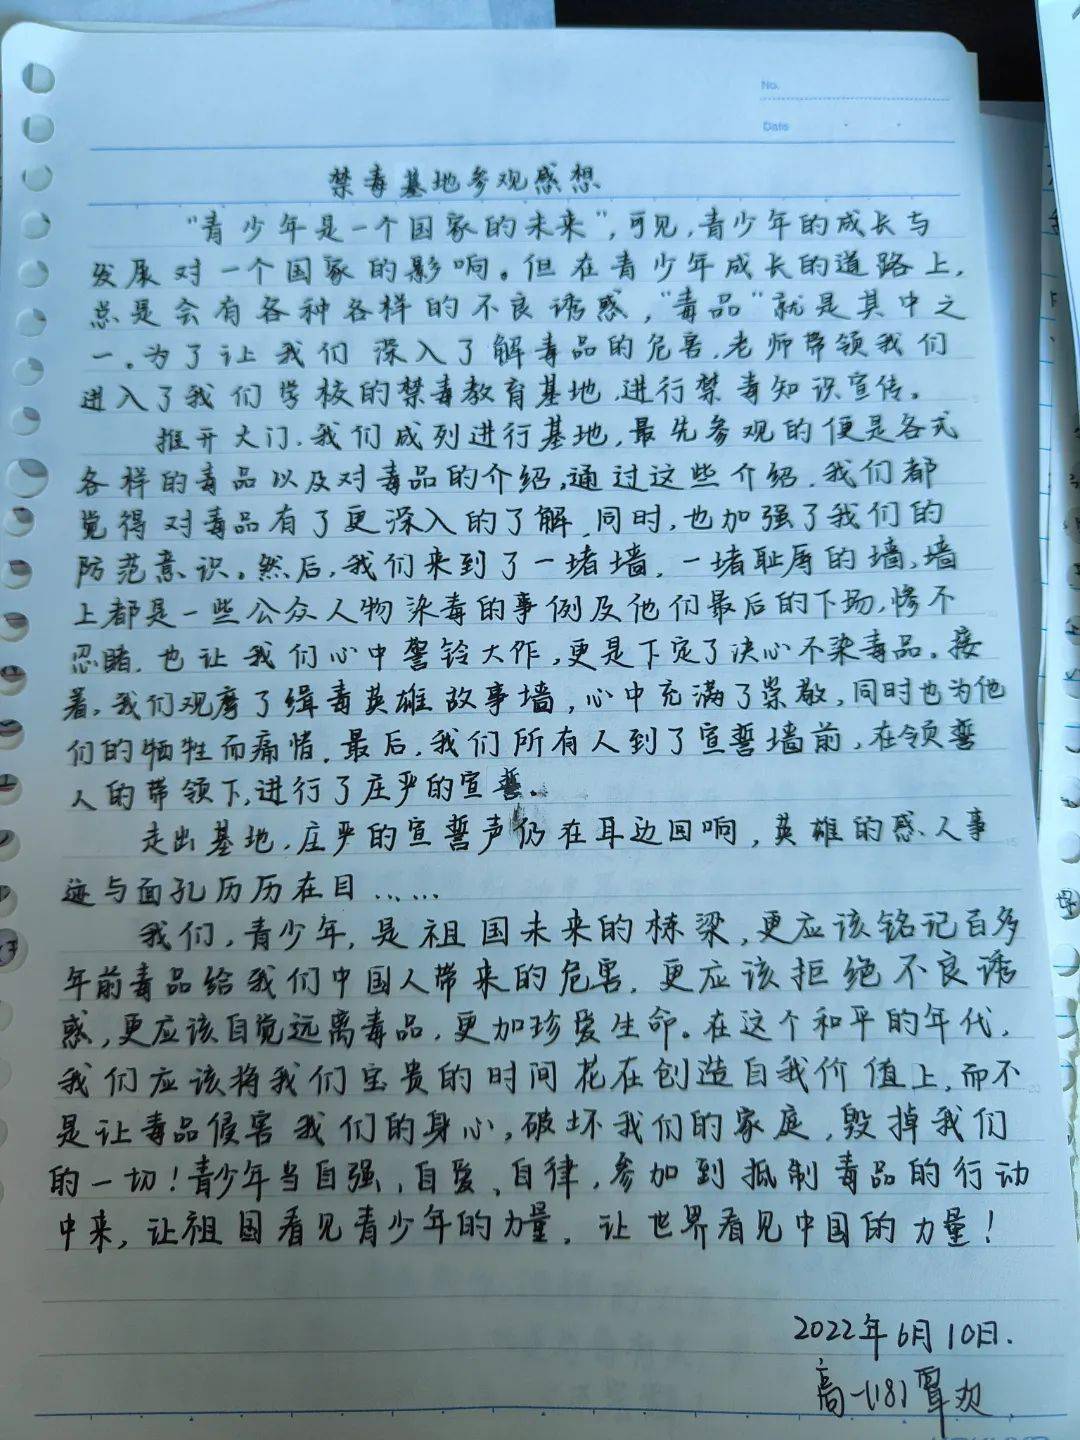 No.
Date
禁毒基地参观感想
“青少年是一个国家的未来”,可见,青少年的成长与
发展对一个国家的影响。但在青少年成长的道路上,
总是会有各种各样的不良诱惑,“毒品”就是其中之
一。为了让我们深入了解毒品的危害,老师带领我们
进入了我们学校的禁毒教育基地,进行禁毒知识宣传。
推开大门,我们成列进行基地,最先参观的便是各式
各样的毒品以及对毒品的介绍,通过这些介绍,我们都
觉得对毒品有了更深入的了解,同时,也加强了我们的
防范意识。然后,我们来到了一堵墙,一堵耻辱的墙,墙
上都是一些公众人物染毒的事例及他们最后的下场,惨不
忍睹,也让我们心中警铃大作,更是下定了决心不染毒品。接
着,我们观摩了缉毒英雄故事墙,心中充满了崇敬,同时也为他
们的牺牲而痛惜。最后,我们所有人到了宣誓墙前,在领誓
人的带领下,进行了庄严的宣誓。
走出基地,庄严的宣誓声仍在耳边回响,英雄的感人事
迹与面孔历历在目……
我们,青少年,是祖国未来的栋梁,更应该铭记百多
年前毒品给我们中国人带来的危害,更应该拒绝不良诱
惑,更应该自觉远离毒品,更加珍爱生命。在这个和平的年代,
我们应该将我们宝贵的时间花在创造自我价值上,而不
是让毒品侵害我们的身心,破坏我们的家庭,毁掉我们
的一切!青少年当自强、自爱、自律,参加到抵制毒品的行动
中来,让祖国看见青少年的力量,让世界看见中国的力量!
2022年6月10日.
高一(18)覃欢